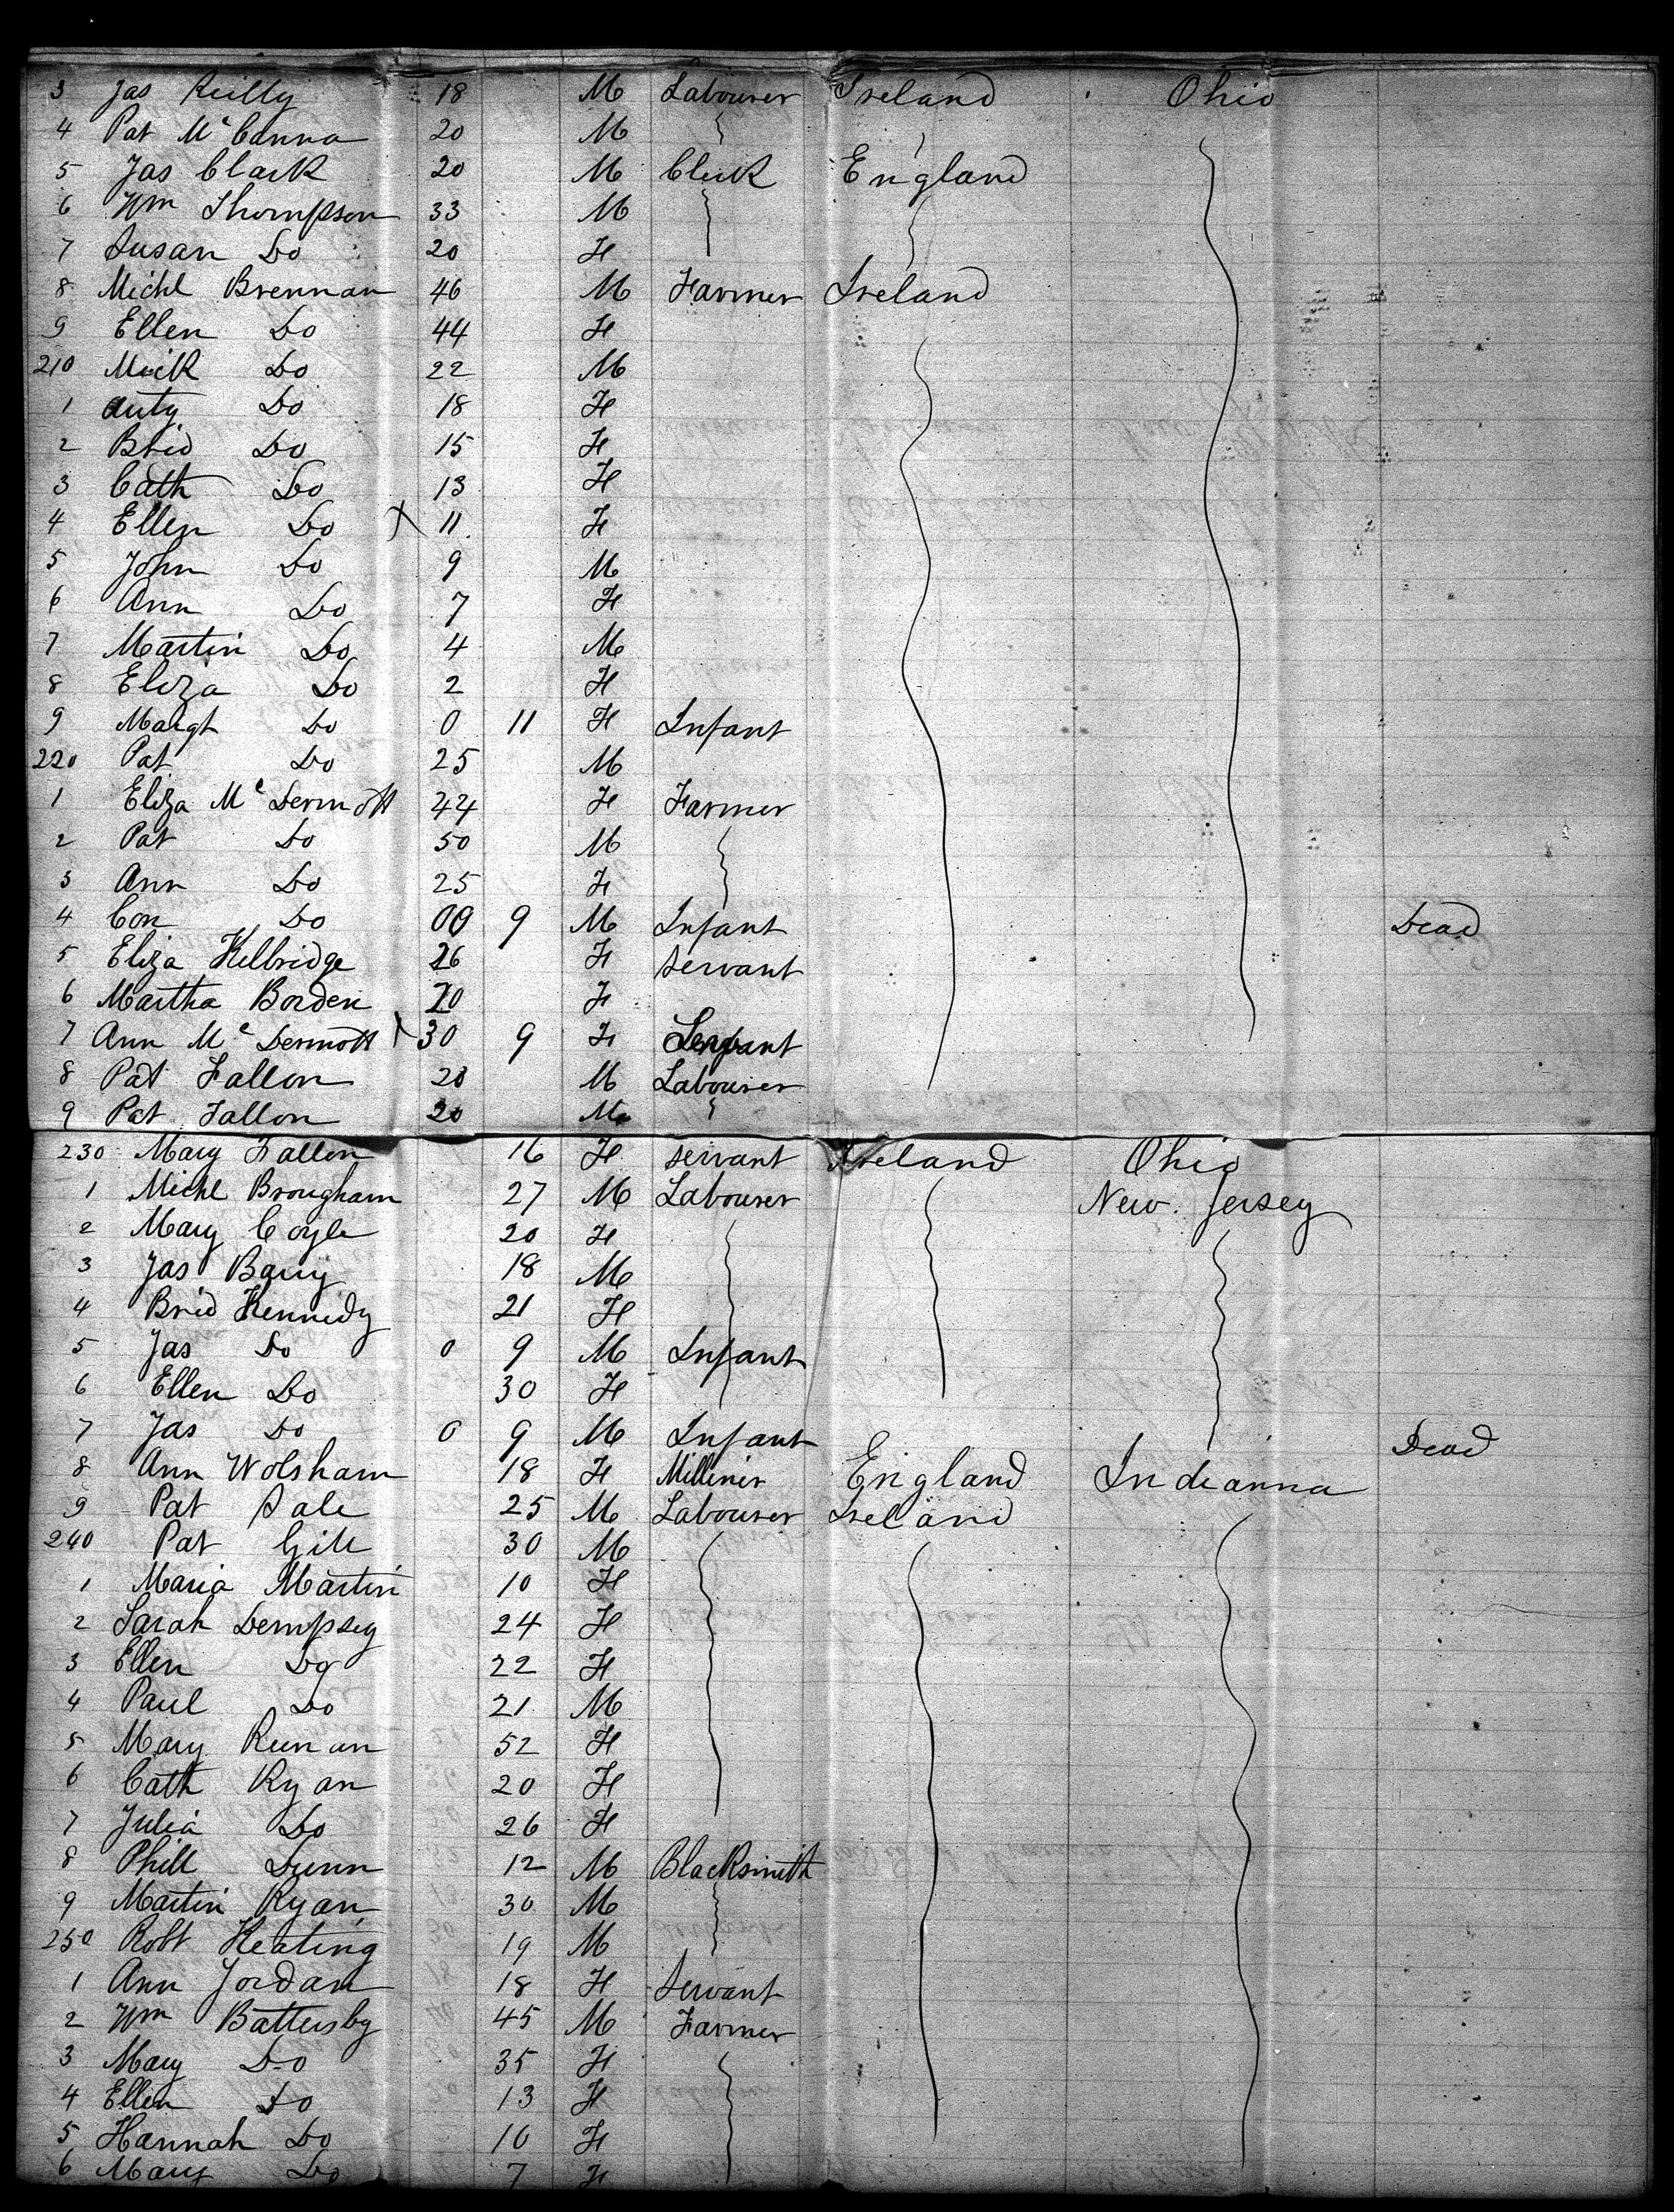 3 Jas Reilly 18 M Labourer Ireland Ohio
4 Pat McCanna 20 M
5 Jas Clark 20 M Clerk England
6 Wm Thompson 33 M
7 Susan Do 20 F
8 Michl Brennan 46 M Farmer Ireland
9 Ellen Do 44 F
210 Mick Do 22 M
1 Anty Do 18 F
2 Brid Do 15 F
3 Cath Do 13 F
4 Ellen Do X 11 F
5 John Do 9 M
6 Ann Do 7 F
7 Martin Do 4 M
8 Eliza Do 2 F
9 Margt Do 0 11 F Infant
220 Pat Do 25 M
1 Eliza McDermott 44 F Farmer
2 Pat Do 50 M
3 Ann Do 25 F
4 Con Do 00 9 M Infant Dead
5 Eliza Kelbridge 26 F Servant
6 Martha Borden 20 F
7 Ann McDermott X 30 9 F
8 Pat Fallon 20 M Labourer
9 Pat Fallon 20 M
230 Mary Fallon 16 F Servant Ireland Ohio
1 Michl Brougham 27 M Labourer New Jersey
2 Mary Coyle 20 F
3 Jas Barry 18 M
4 Brid Kennedy 21 F
5 Jas Do 0 9 M Infant
6 Ellen Do 30 F
7 Jas Do 0 9 M Infant Dead
8 Ann Wolsham 18 F Milliner England Indianna
9 Pat Dale 25 M Labourer Ireland
240 Pat Gill 30 M
1 Maria Martin 10 F
2 Sarah Dempsey 24 F
3 Ellen Do 22 F
4 Paul Do 21 M
5 Mary Keenan 52 F
6 Cath Ryan 20 F
7 Julia Do 26 F
8 Phill Dunn 12 M Blacksmith
9 Martin Ryan 30 M
250 Robt Keating 19 M
1 Ann Jordan 18 F Servant
2 Wm Battersby 45 M Farmer
3 Mary Do 35 F
4 Ellen Do 13 F
5 Hannah Do 10 F
6 Mary Do 7 F